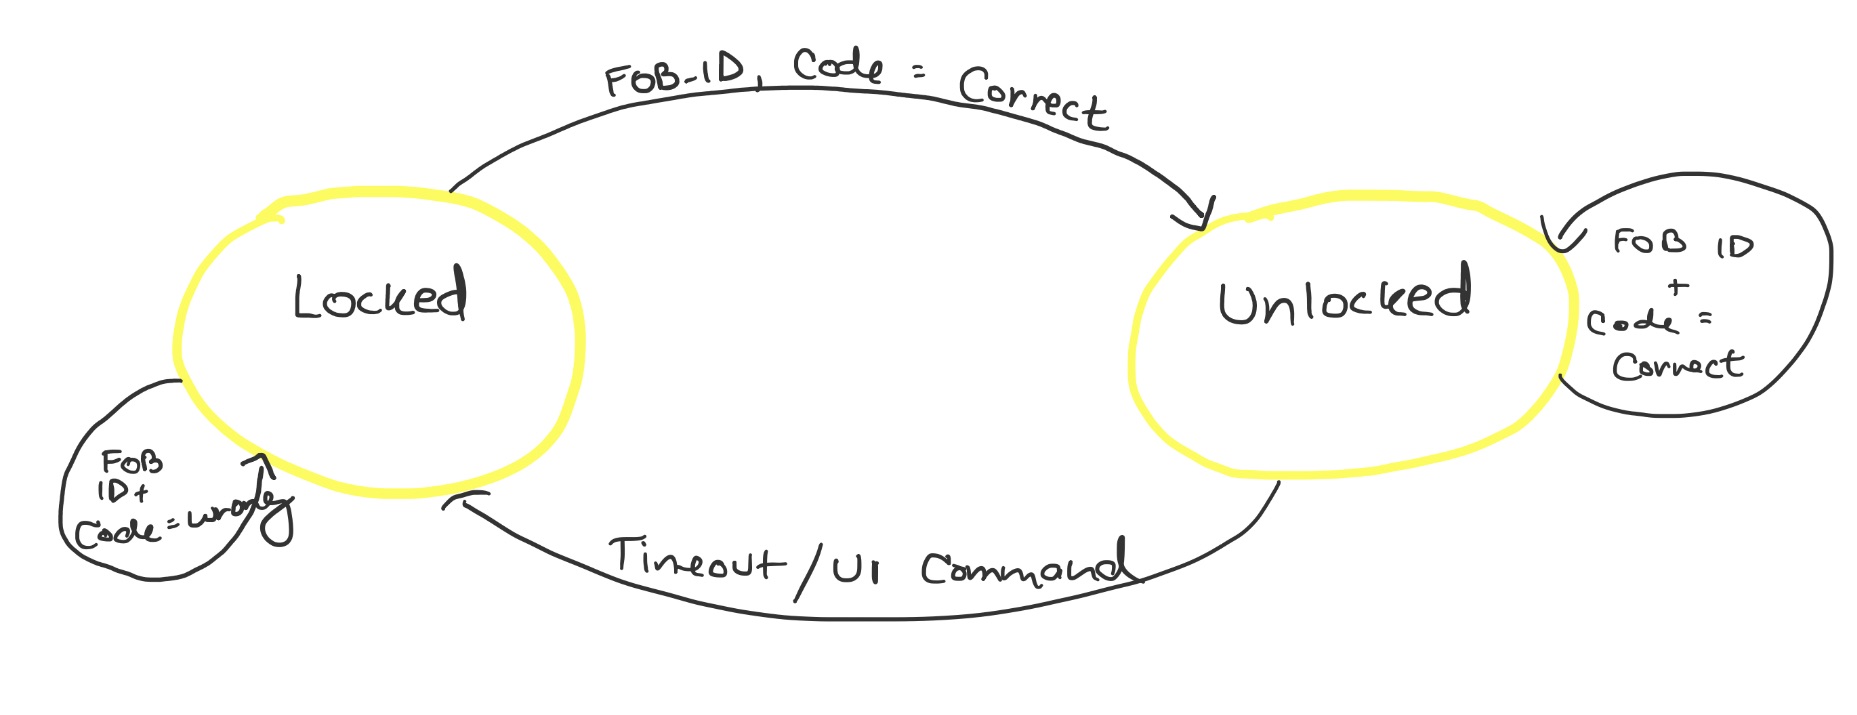 FOB-ID, Code = Correct
Locked
Unlocked
FOB ID
+
Code =
Correct
FOB
ID+
Code = wrong
Timeout / UI Command